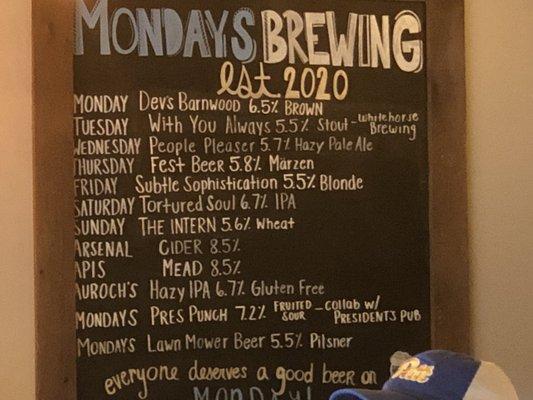 MONDAYS BREWING
est 2020
MONDAY Dev's Barnwood 6.5% BROWN
TUESDAY With You Always 5.5% Stout - Whitehorse Brewing
WEDNESDAY People Pleaser 5.7% Hazy Pale Ale
THURSDAY Fest Beer 5.8% Märzen
FRIDAY Subtle Sophistication 5.5% Blonde
SATURDAY Tortured Soul 6.7% IPA
SUNDAY THE INTERN 5.6% Wheat
ARSENAL CIDER 8.5%
APIS MEAD 8.5%
AUROCH'S Hazy IPA 6.7% Gluten Free
MONDAYS PRES PUNCH 7.2% FRUITED SOUR - COLLAB W/ PRESIDENTS PUB
MONDAYS LAWN MOWER BEER 5.5% Pilsner
everyone deserves a good beer on
MONDAY!